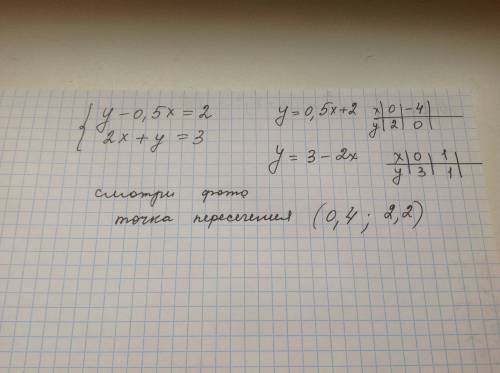 { y - 0,5x = 2
2x + y = 3
y = 0,5x + 2
x | 0 | -4
y | 2 | 0
y = 3 - 2x
x | 0 | 1
y | 3 | 1
смотри фото
точка пересечения (0,4 ; 2,2)